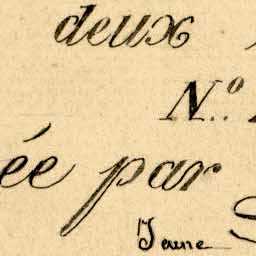 deux
N.º
ée par
Jeune